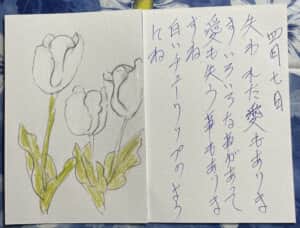 四月七日
失われた愛もありま
す いろいろな愛があって
愛も失う事もありま
すね
白いチューリップのよう
にね